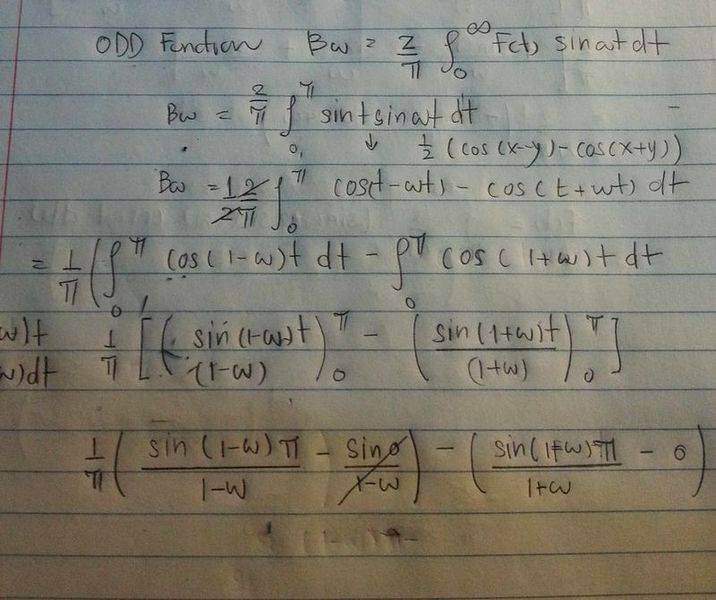 ODD Function Bω = 2/π ∫₀^∞ F(t) sin ωt dt
Bω = 2/π ∫₀^π sin t sin ωt dt
↓ 1/2 (cos(x-y) - cos(x+y))
Bω = 1 2/2π ∫₀^π cos(t - ωt) - cos(t + ωt) dt
= 1/π (∫₀^π cos(1-ω)t dt - ∫₀^π cos(1+ω)t dt
ω)t 1/π [(sin(1-ω)t/(1-ω))₀^π - (sin(1+ω)t/(1+ω))₀^π]
ω)dt
1/π (sin(1-ω)π/1-ω - sin0/1-ω) - (sin(1+ω)π/1+ω - 0)